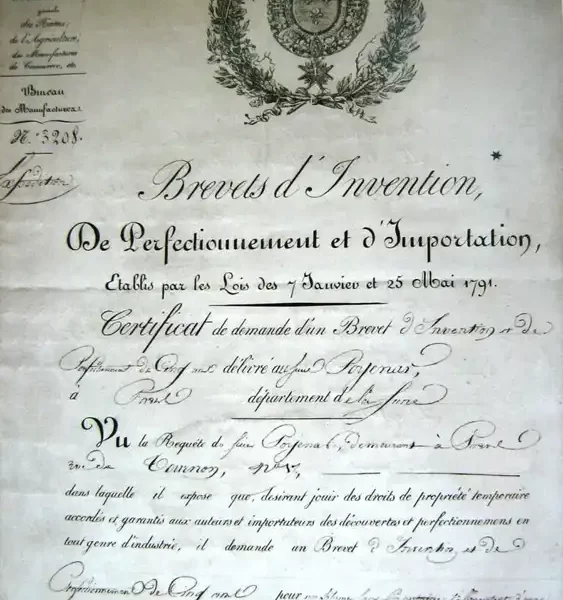 générale
des Haras,
de l'Agriculture,
des Manufactures
du Commerce, etc
Bureau
des Manufactures.
N.° 3208.
Expédition
Brevets d'Invention,
De Perfectionnement et d'Importation,
Etablis par les Lois des 7 Janvier et 25 Mai 1791.
Certificat de demande d'un Brevet d'Invention et de
Perfectionnement de Cinq ans délivré au Sieur
à Paris département de la Seine
Vu la Requête du Sieur demeurant à Paris
rue de Tournon,
dans laquelle il expose que, desirant jouir des droits de propriété temporaire
accordés et garantis aux auteurs et importateurs des découvertes et perfectionnemens en
tout genre d'industrie, il demande un Brevet d'Invention et de
Perfectionnement de Cinq ans pour